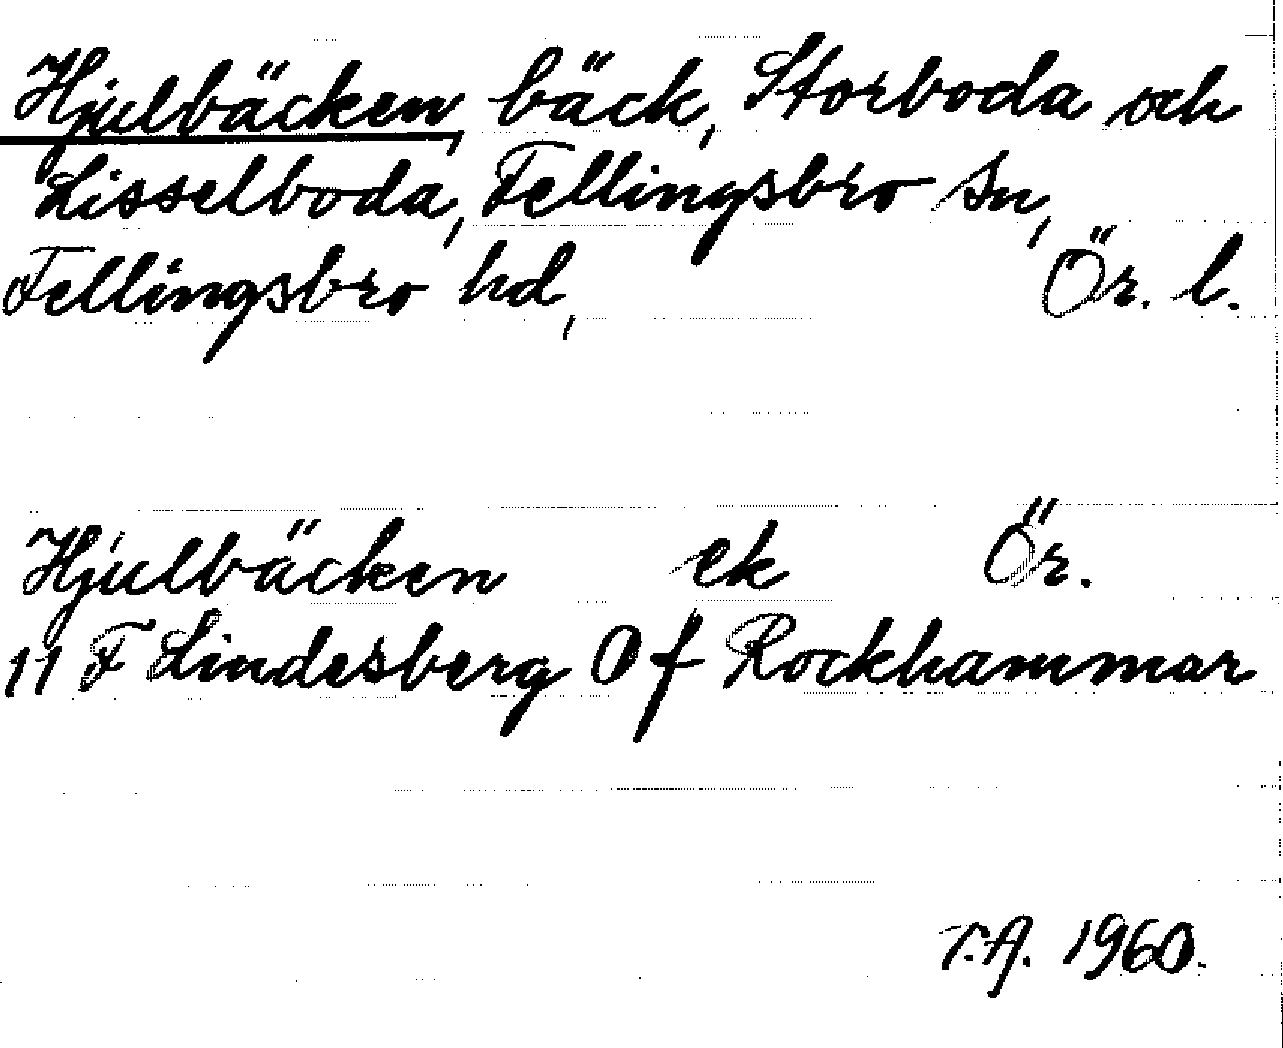 Hjulbäcken, bäck, Storboda och
Lisselboda, Fellingsbro sn,
Fellingsbro hd, Ör. l.
Hjulbäcken ek Ör.
11 F Lindesberg 0 f Rockhammar
T.A. 1960.